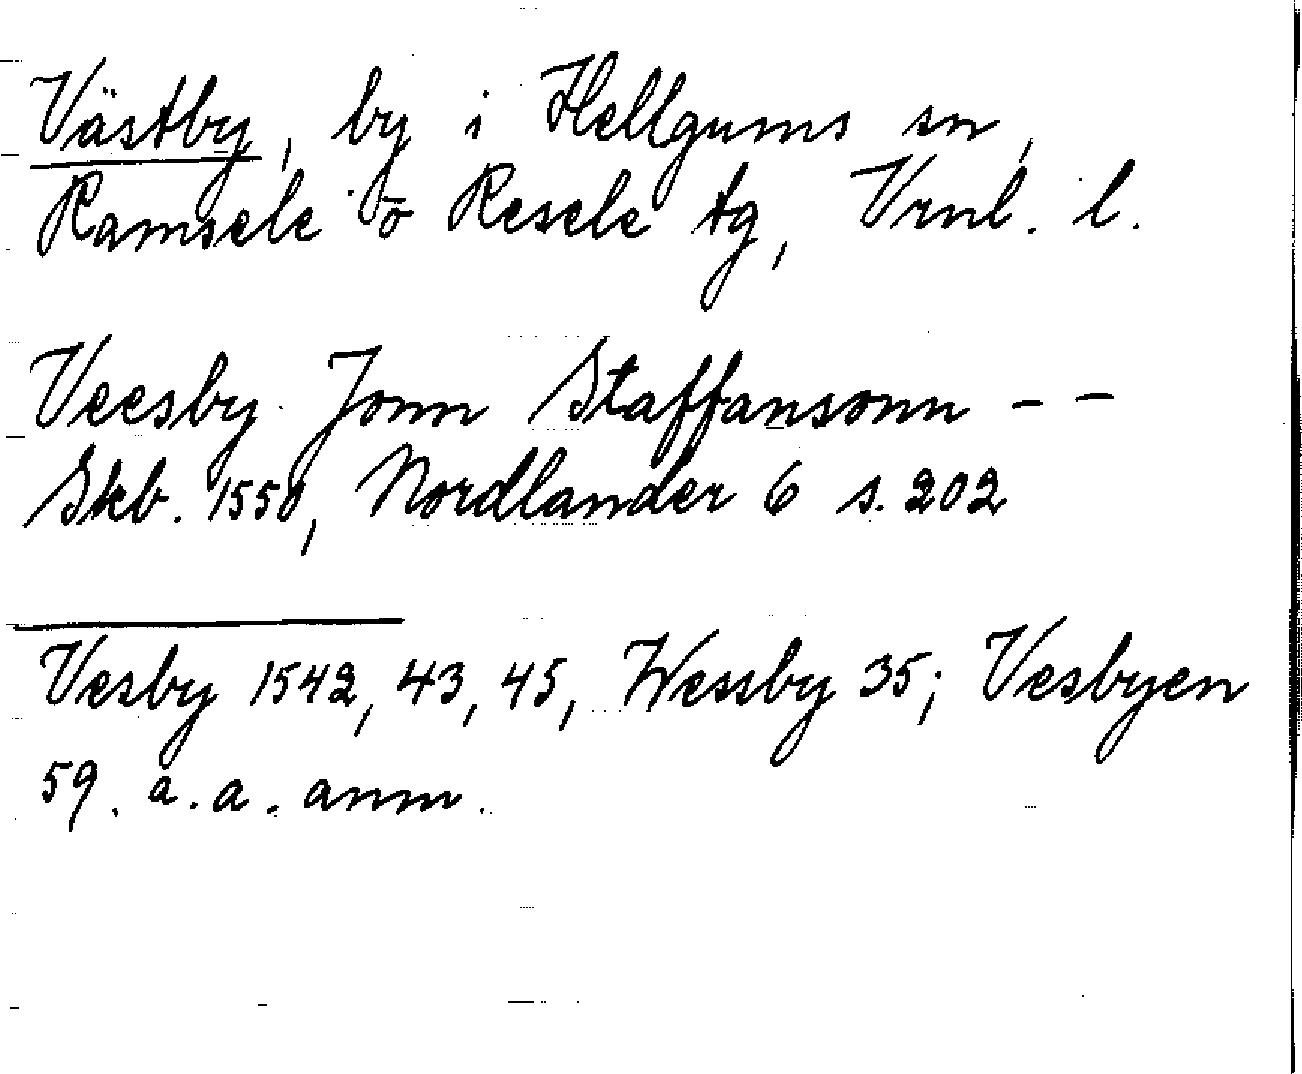 Västby, by i Hellgums sn,
Ramsele o Resele tg, Vrnl. l.
Veesby Jonn Staffansonn - -
Skb. 1550, Nordlander 6 s. 202
Vesby 1542, 43, 45, Wessby 35; Vesbyen
59. a. a. anm.